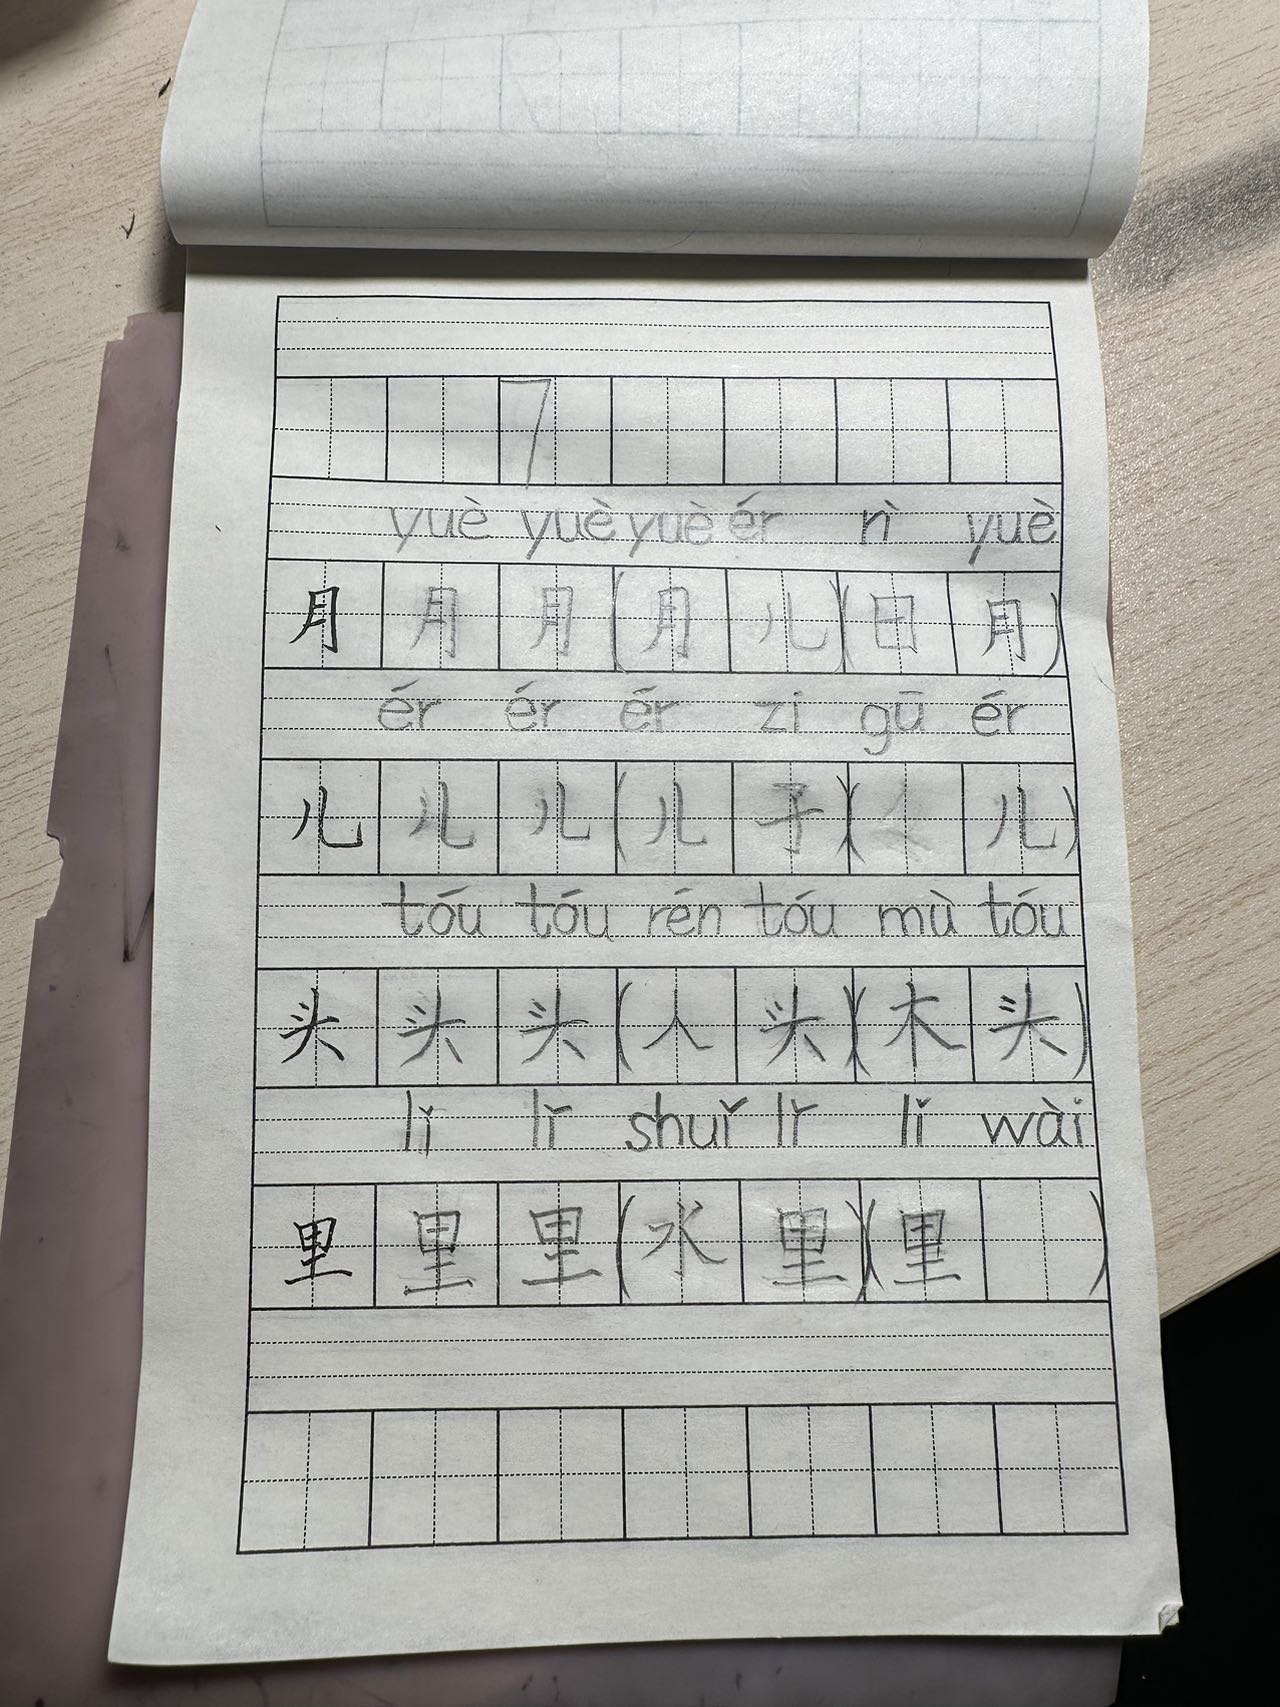 7
yuè yuè yuè ér rì yuè
月 月 月 (月 儿) (日 月)
ér ér ér zi gū ér
儿 儿 儿 (儿 子) ( 儿)
tóu tóu rén tóu mù tóu
头 头 头 (人 头) (木 头)
lǐ lǐ shuǐ lǐ lǐ wài
里 里 里 (水 里) (里 )